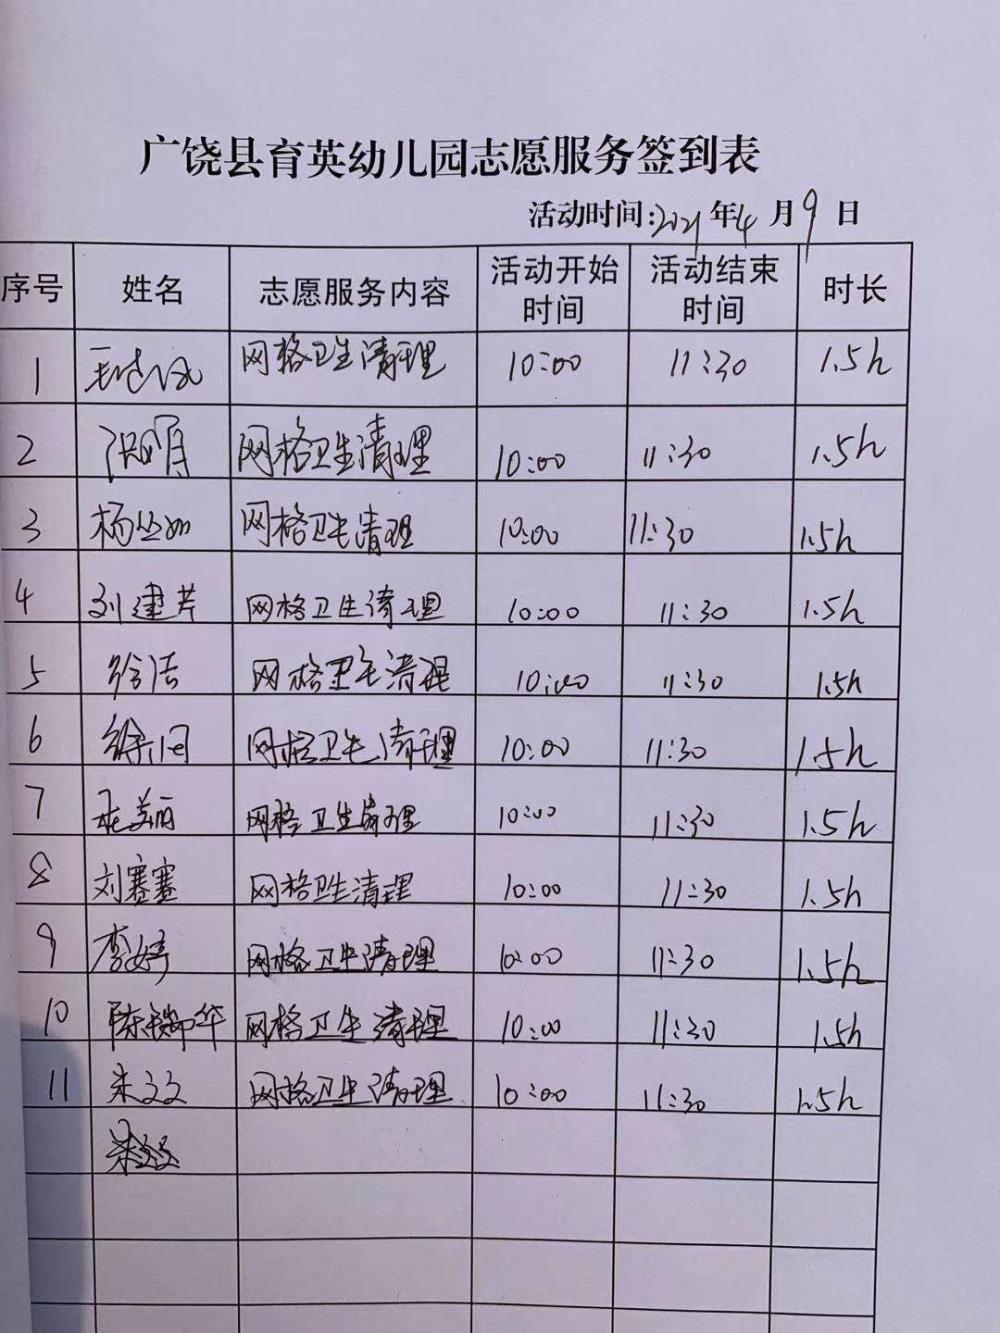 广饶县育英幼儿园志愿服务签到表
活动时间:2021年4月9日
序号 姓名 志愿服务内容 活动开始时间 活动结束时间 时长
1 网格卫生清理 10:00 11:30 1.5h
2 网格卫生清理 10:00 11:30 1.5h
3 杨丛如 网格卫生清理 10:00 11:30 1.5h
4 刘建芹 网格卫生清理 10:00 11:30 1.5h
5 徐洁 网格卫生清理 10:00 11:30 1.5h
6 网格卫生清理 10:00 11:30 1.5h
7 张美丽 网格卫生清理 10:00 11:30 1.5h
8 刘赛赛 网格卫生清理 10:00 11:30 1.5h
9 李婷 网格卫生清理 10:00 11:30 1.5h
10 网格卫生清理 10:00 11:30 1.5h
11 朱文文 网格卫生清理 10:00 11:30 1.5h